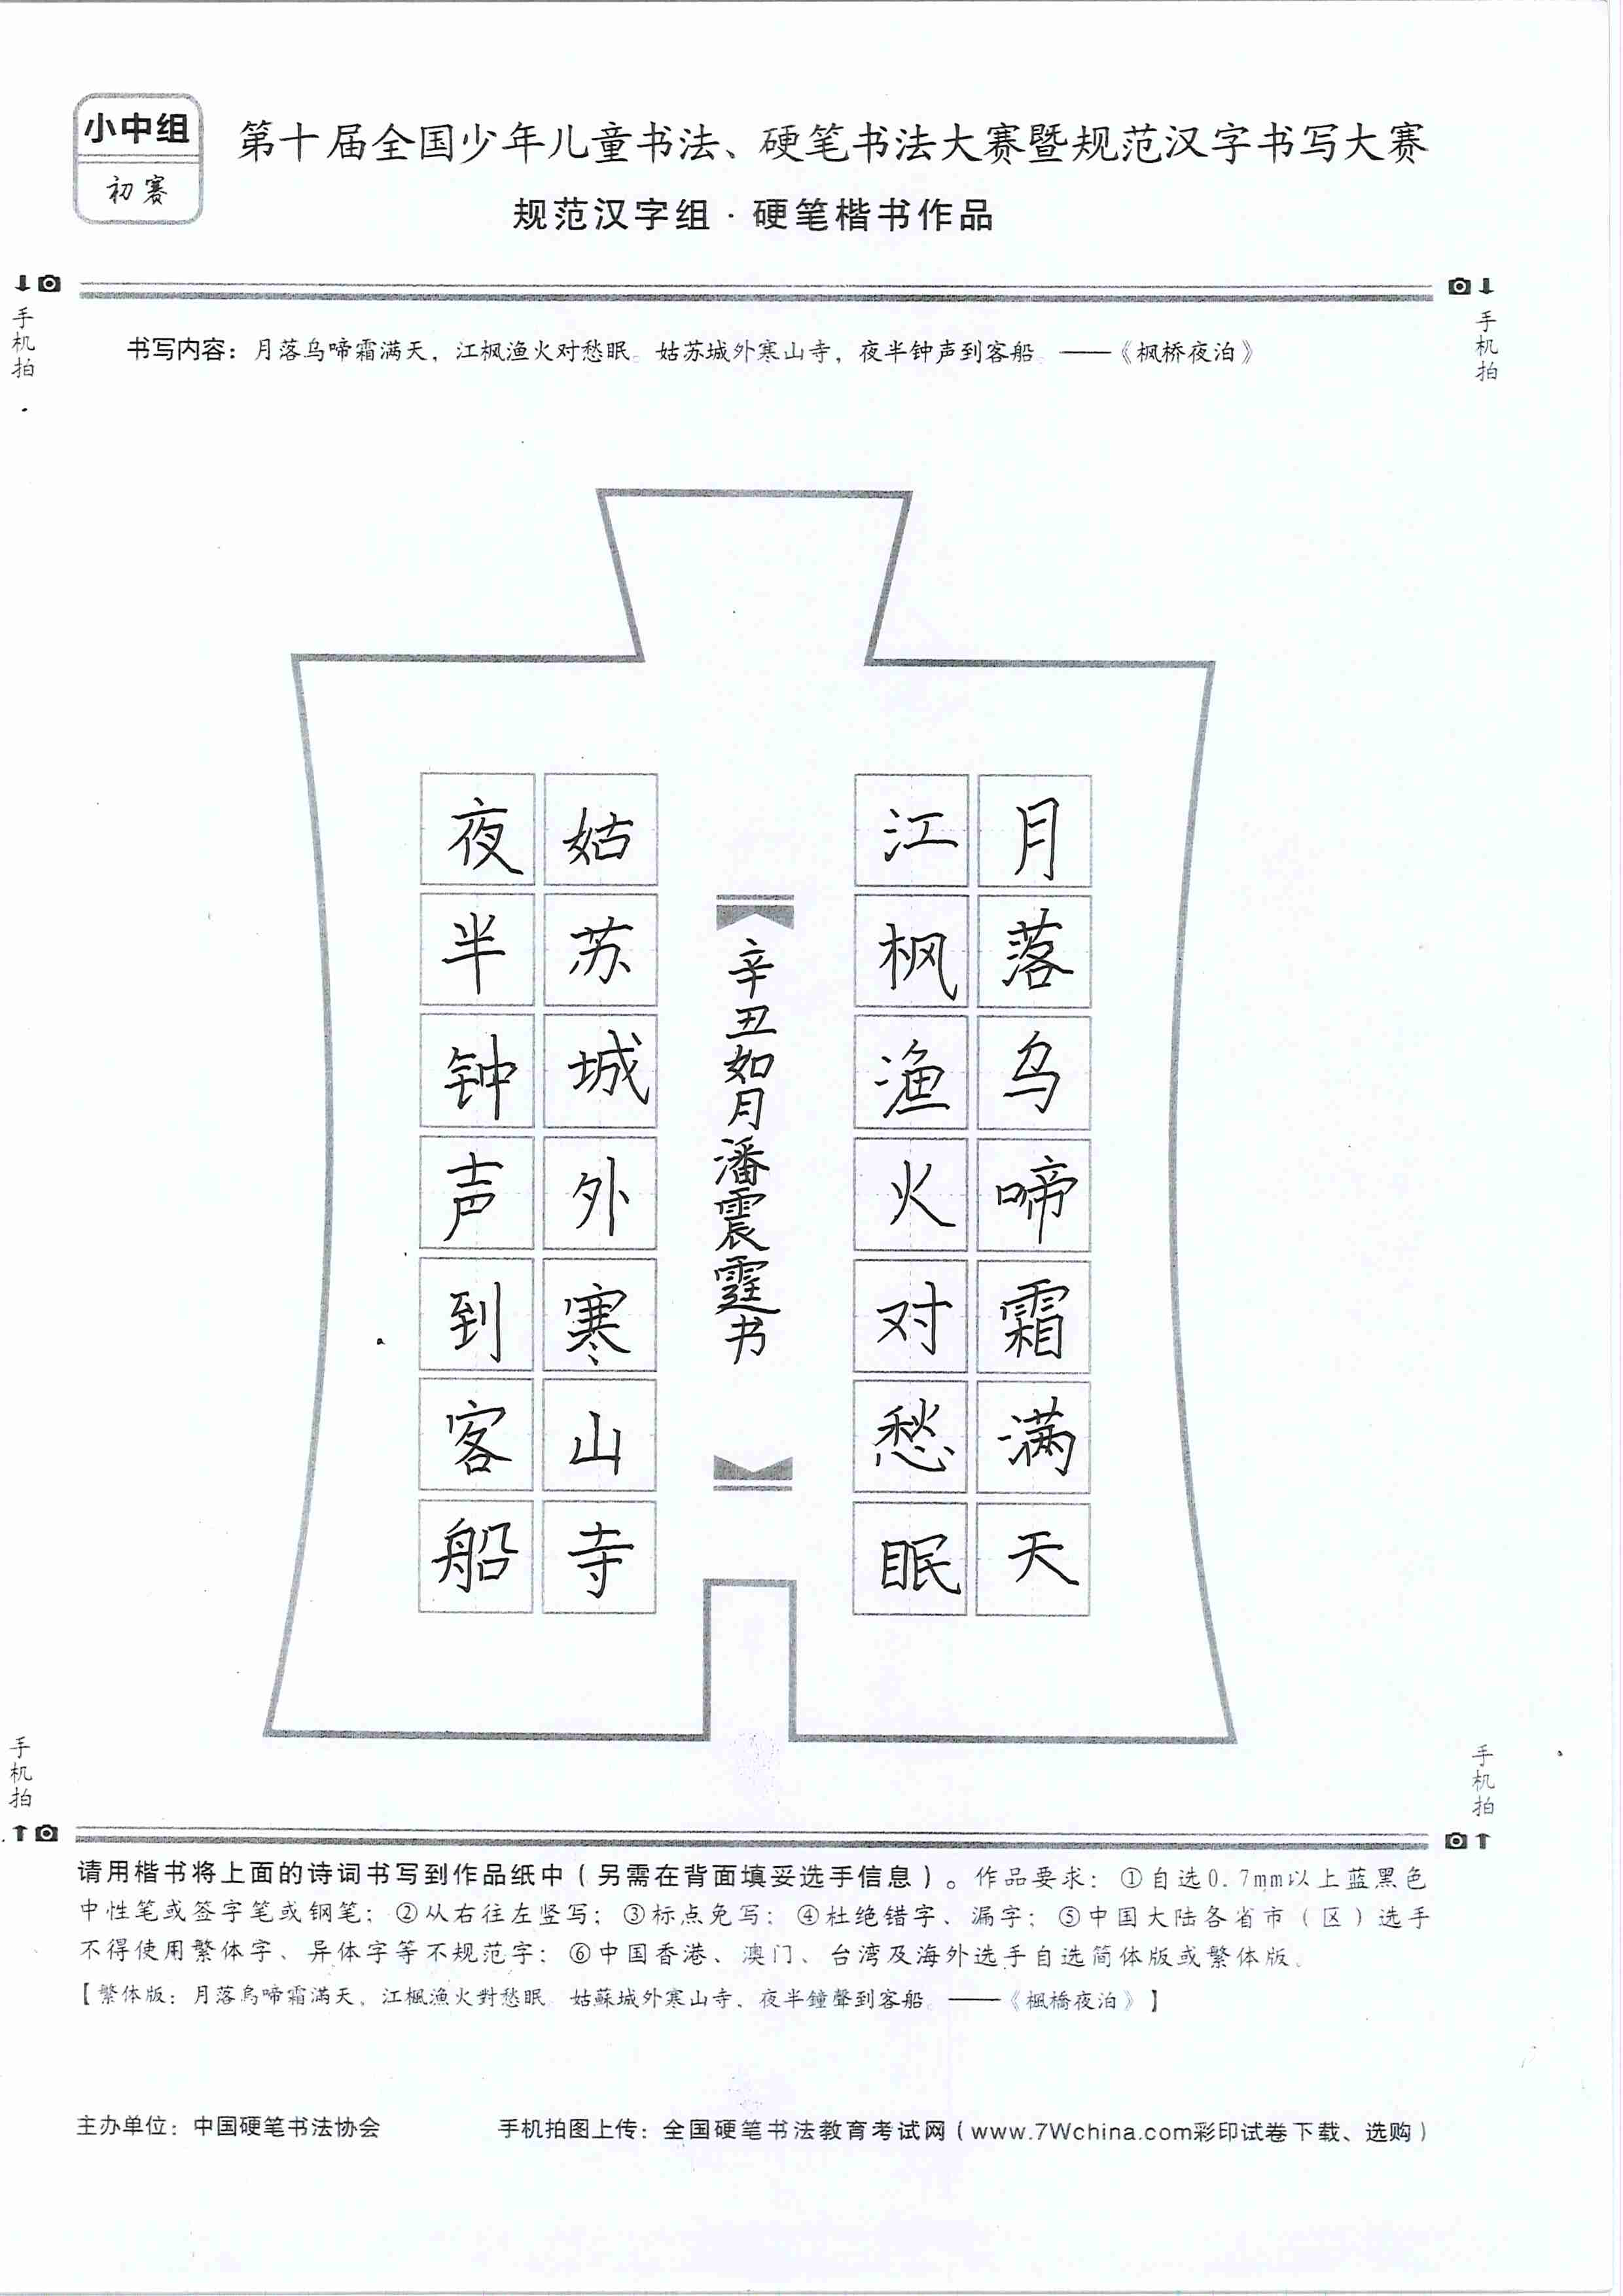 小中组
初赛
第十届全国少年儿童书法、硬笔书法大赛暨规范汉字书写大赛
规范汉字组·硬笔楷书作品
手机拍
手机拍
书写内容：月落乌啼霜满天，江枫渔火对愁眠。姑苏城外寒山寺，夜半钟声到客船。——《枫桥夜泊》
月落乌啼霜满天
江枫渔火对愁眠
辛丑如月潘震霆书
姑苏城外寒山寺
夜半钟声到客船
手机拍
手机拍
请用楷书将上面的诗词书写到作品纸中（另需在背面填妥选手信息）。作品要求：①自选0.7mm以上蓝黑色
中性笔或签字笔或钢笔；②从右往左竖写；③标点免写；④杜绝错字、漏字；⑤中国大陆各省市（区）选手
不得使用繁体字、异体字等不规范字；⑥中国香港、澳门、台湾及海外选手自选简体版或繁体版。
【繁体版：月落烏啼霜滿天，江楓漁火對愁眠。姑蘇城外寒山寺，夜半鐘聲到客船。——《楓橋夜泊》】
主办单位：中国硬笔书法协会
手机拍图上传：全国硬笔书法教育考试网（www.7Wchina.com彩印试卷下载、选购）